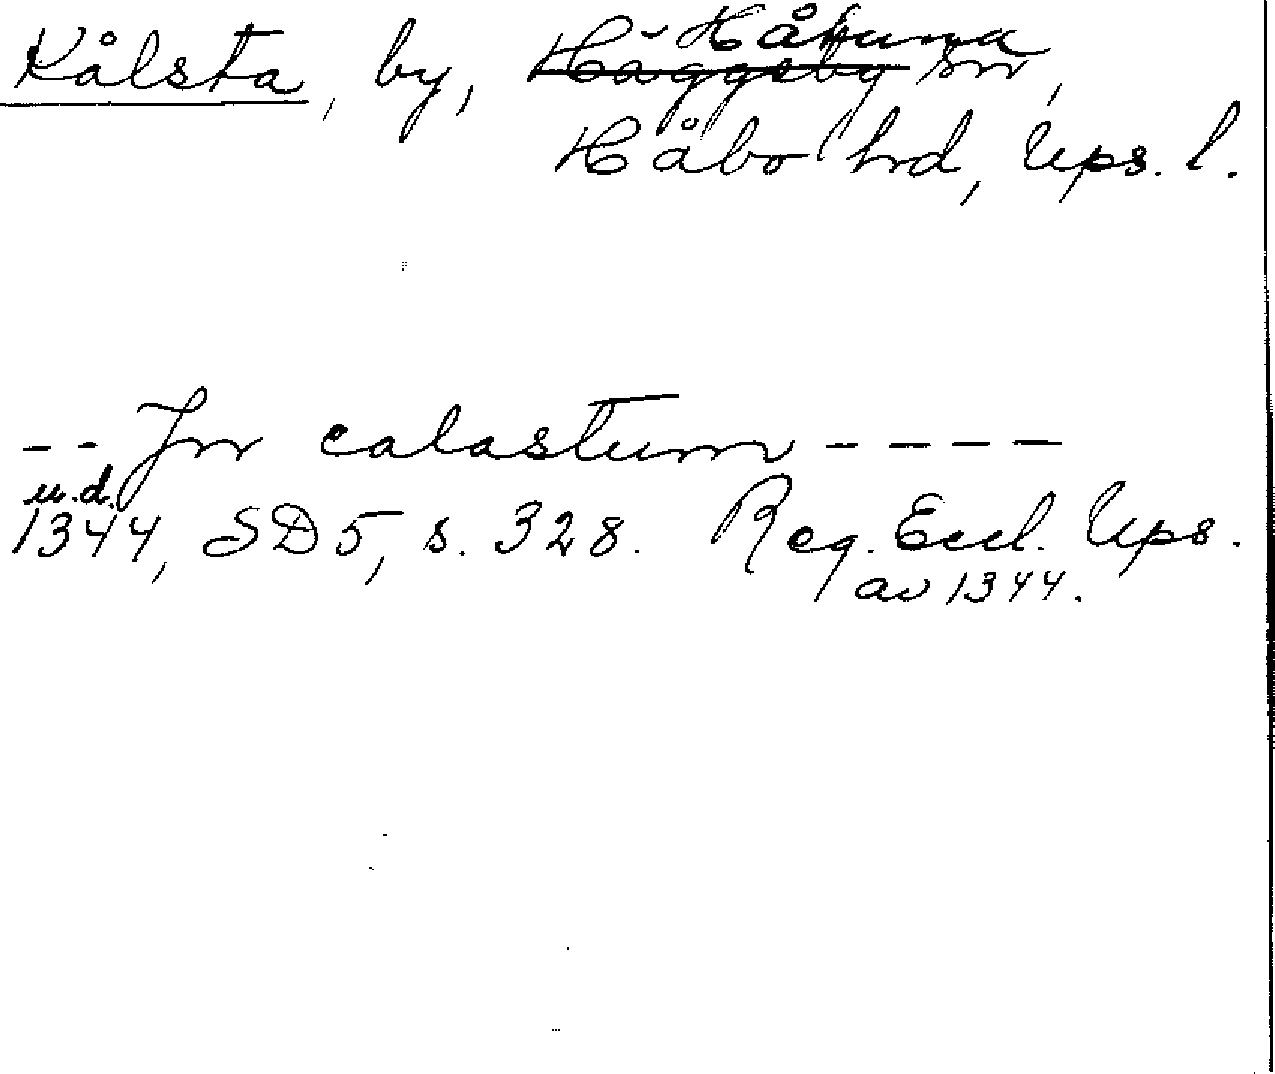 Håtuna
Kålsta, by, Häggeby sn,
Håbo hrd, Ups. l.
-- Jn calastum ----
u.d.
1344, SD 5, s. 328. Reg. Eccl. Ups.
av 1344.